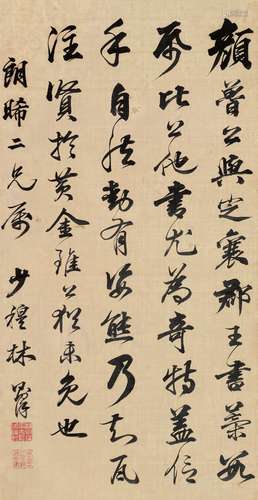 顏魯公與定襄郡王書藁數
帋比公他書尤為奇特蓋信
手自然動有姿態乃知瓦
注賢於黃金雖公猶未免也
朗晞二兄屬 少穆林則徐